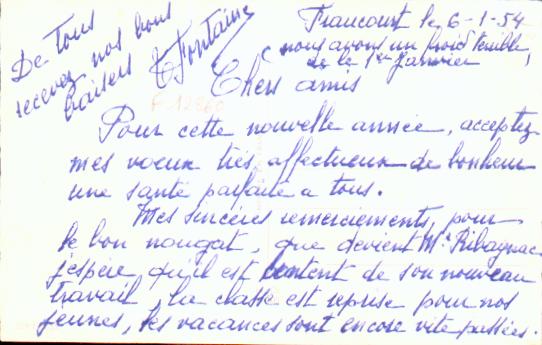 Francourt le 6-1-54
nous avons un froid terrible,
de le 1er Janvier
Chers amis
Pour cette nouvelle année, acceptez
mes voeux très affectueux de bonheur
une santé parfaite a tous.
Mes sincères remerciements, pour
le bon nougat, que devient Mr Ribagnac
j'espère, qu'il est content de son nouveau
travail, la classe est reprise pour nos
jeunes, les vacances sont encore vite passées.
De tous
recevez nos bons
baisers Fontaine